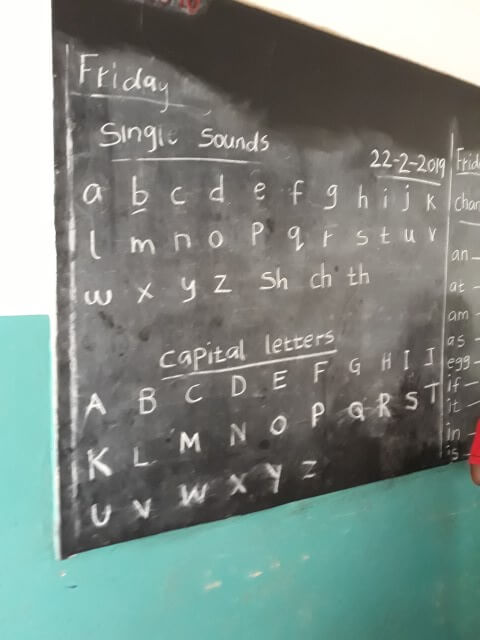 Friday
Single Sounds
22-2-2019
a b c d e f g h i j k
l m n o p q r s t u v
w x y z sh ch th
Capital letters
A B C D E F G H I J
K L M N O P Q R S T
U V W X Y Z
an
at
am
as
egg
if
it
in
is